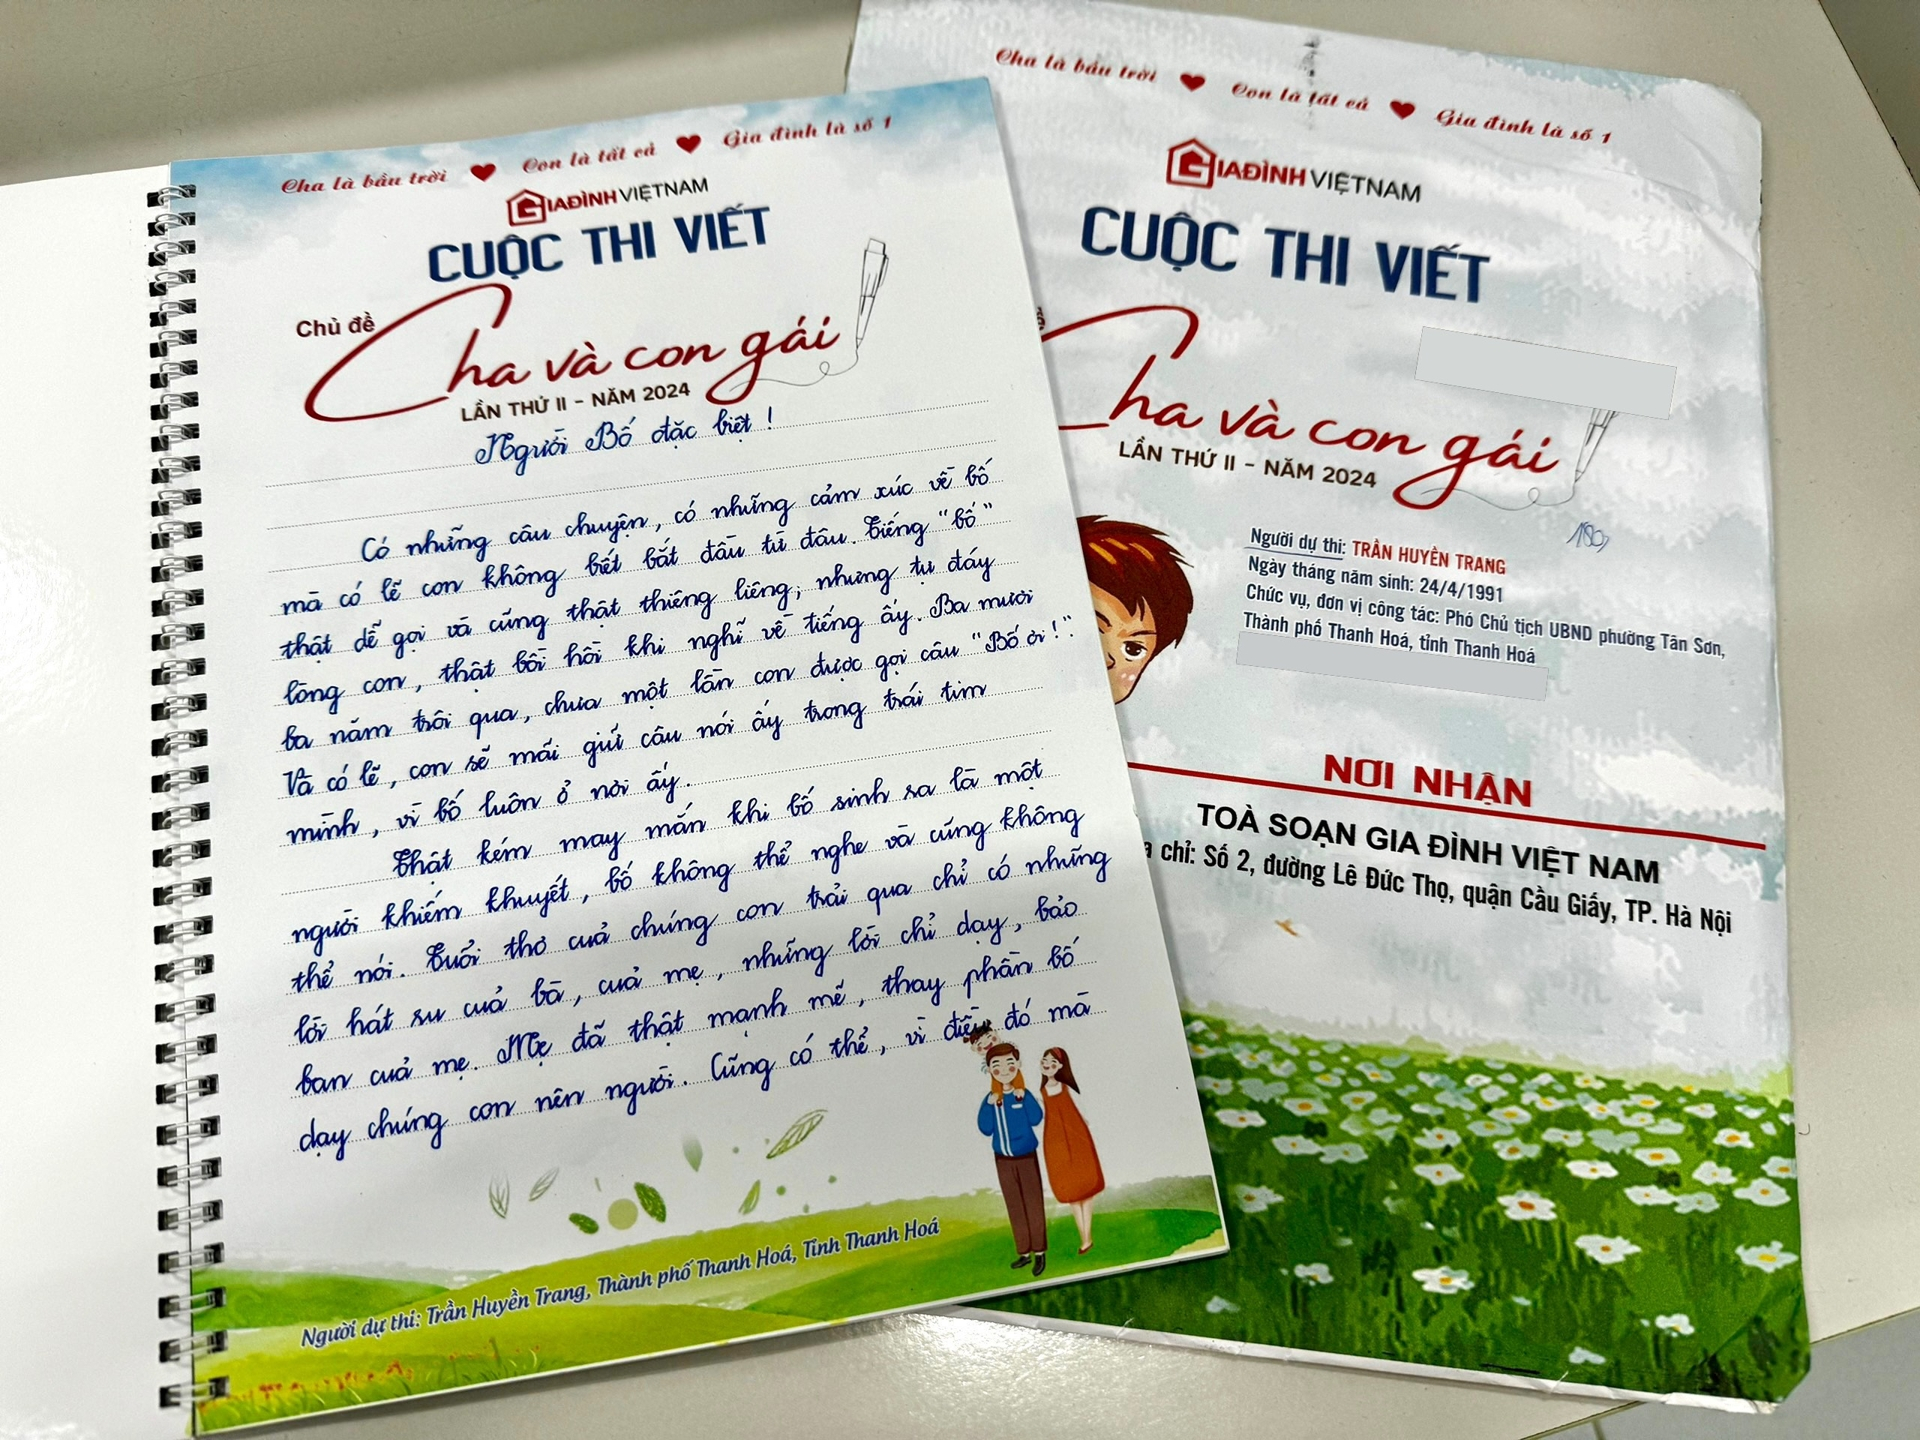 Cha là bầu trời ♥ Con là tất cả ♥ Gia đình là số 1
GIAĐÌNH VIỆTNAM
CUỘC THI VIẾT
Chủ đề
Cha và con gái
LẦN THỨ II - NĂM 2024
Người Bố đặc biệt !
Có những câu chuyện, có những cảm xúc về bố
mà có lẽ con không biết bắt đầu từ đâu. Tiếng "bố"
thật dễ gọi và cũng thật thiêng liêng, nhưng tự đáy
lòng con, thật bồi hồi khi nghĩ về tiếng ấy. Ba mươi
ba năm trôi qua, chưa một lần con được gọi câu "Bố ơi!".
Và có lẽ, con sẽ mãi giữ câu nói ấy trong trái tim
mình, vì bố luôn ở nơi ấy.
Thật kém may mắn khi bố sinh ra là một
người khiếm khuyết, bố không thể nghe và cũng không
thể nói. Tuổi thơ cuả chúng con trải qua chỉ có những
lời hát ru cuả bà, cuả mẹ, những lời chỉ dạy, bảo
ban cuả mẹ. Mẹ đã thật mạnh mẽ, thay phần bố
dạy chúng con nên người. Cũng có thể, vì điều đó mà
Người dự thi: Trần Huyền Trang, Thành phố Thanh Hoá, Tỉnh Thanh Hoá
Cha là bầu trời ♥ Con là tất cả ♥ Gia đình là số 1
GIAĐÌNH VIỆTNAM
CUỘC THI VIẾT
Cha và con gái
LẦN THỨ II - NĂM 2024
Người dự thi: TRẦN HUYỀN TRANG
Ngày tháng năm sinh: 24/4/1991
Chức vụ, đơn vị công tác: Phó Chủ tịch UBND phường Tân Sơn,
Thành phố Thanh Hoá, tỉnh Thanh Hoá
NƠI NHẬN
TOÀ SOẠN GIA ĐÌNH VIỆT NAM
chỉ: Số 2, đường Lê Đức Thọ, quận Cầu Giấy, TP. Hà Nội